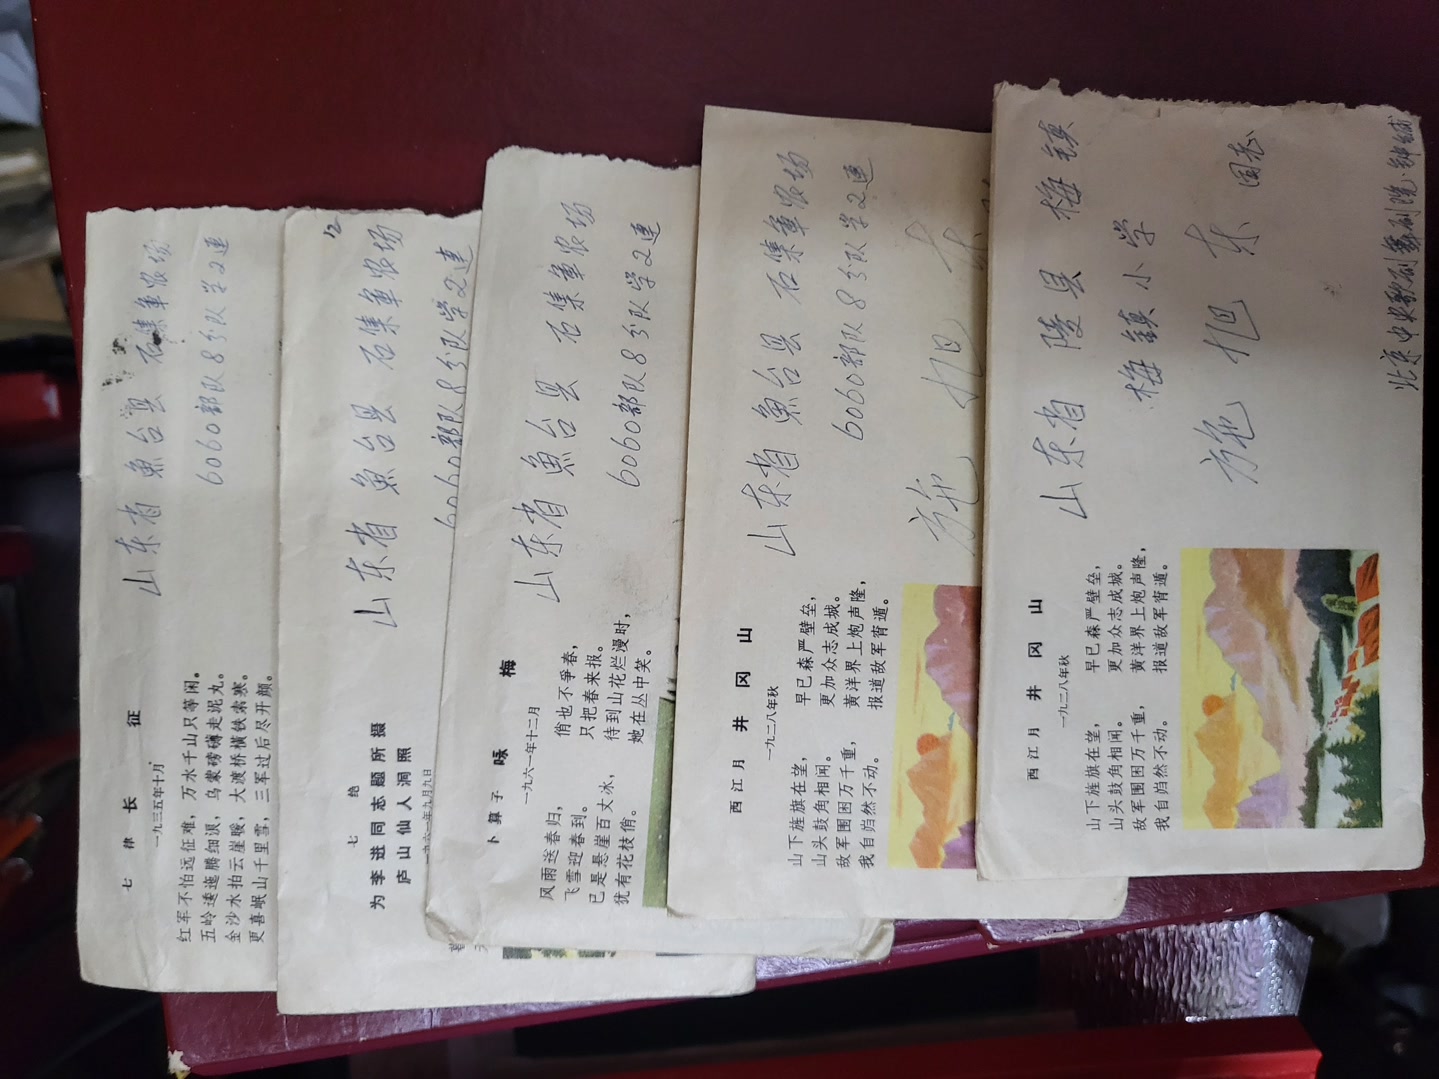 七律 长征
一九三五年十月
红军不怕远征难，万水千山只等闲。
五岭逶迤腾细浪，乌蒙磅礴走泥丸。
金沙水拍云崖暖，大渡桥横铁索寒。
更喜岷山千里雪，三军过后尽开颜。
山东省 鱼台县 石集军农场
6060部队8分队学2连
12
七绝
为李进同志题所摄
庐山仙人洞照
一九六一年九月九日
山东省 鱼台县 石集军农场
6060部队8分队学2连
卜算子 咏梅
一九六一年十二月
风雨送春归，
飞雪迎春到。
已是悬崖百丈冰，
犹有花枝俏。
俏也不争春，
只把春来报。
待到山花烂漫时，
她在丛中笑。
山东省 鱼台县 石集军农场
6060部队8分队学2连
西江月 井冈山
一九二八年秋
山下旌旗在望，
山头鼓角相闻。
敌军围困万千重，
我自岿然不动。
早已森严壁垒，
更加众志成城。
黄洋界上炮声隆，
报道敌军宵遁。
山东省 鱼台县 石集军农场
6060部队8分队学2连
施旭东
西江月 井冈山
一九二八年秋
山下旌旗在望，
山头鼓角相闻。
敌军围困万千重，
我自岿然不动。
早已森严壁垒，
更加众志成城。
黄洋界上炮声隆，
报道敌军宵遁。
山东省 陵县 梅镇
梅镇小学
施旭东 同志
北京中央歌剧舞剧院·钟